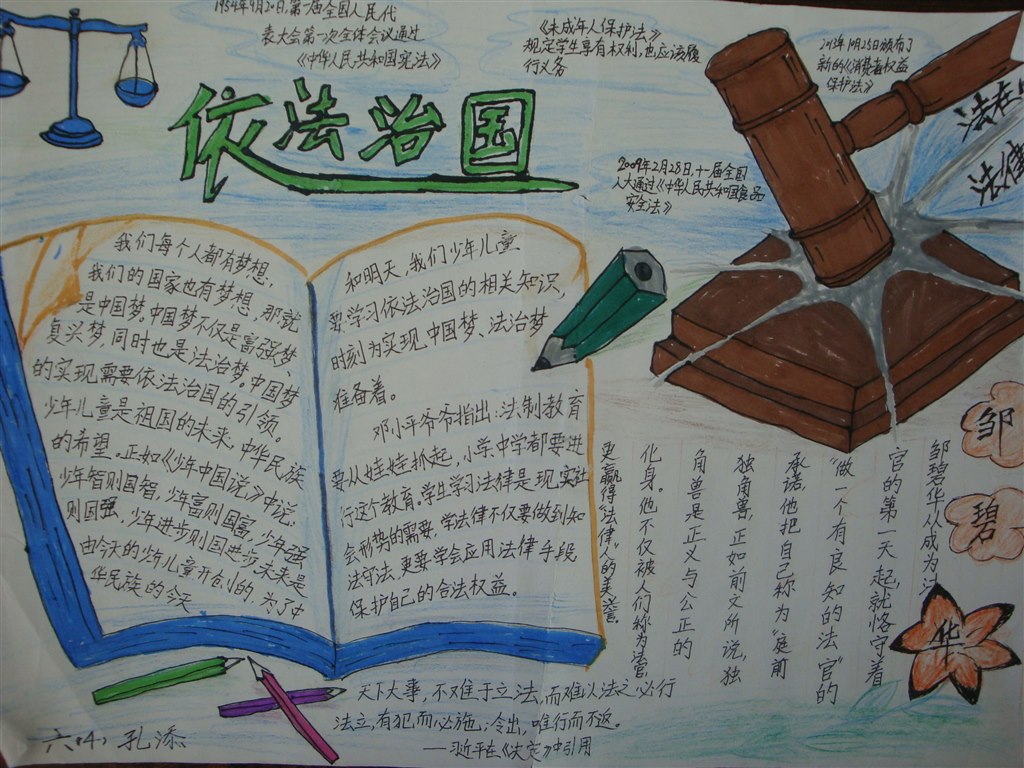 1954年9月20日,第一届全国人民代
表大会第一次全体会议通过
《中华人民共和国宪法》
《未成年人保护法》
规定学生享有权利,也应该履
行义务
2013年10月25日颁布了
新的《消费者权益
保护法》
依法治国
2009年2月28日,十一届全国
人大通过《中华人民共和国食品
安全法》
法在
法律
我们每个人都有梦想,
我们的国家也有梦想,那就
是中国梦。中国梦不仅是富强梦、
复兴梦,同时也是法治梦。中国梦
的实现需要依法治国的引领。
少年儿童是祖国的未来,中华民族
的希望。正如《少年中国说》中说:
少年智则国智,少年富则国富,少年强
则国强,少年进步则国进步,未来是
由今天的少年儿童开创的,为了中
华民族的今天
和明天,我们少年儿童
要学习依法治国的相关知识,
时刻为实现中国梦、法治梦
准备着。
邓小平爷爷指出:法制教育
要从娃娃抓起,小学中学都要进
行这个教育。学生学习法律是现实社
会形势的需要,学法律不仅要做到知
法守法,更要学会应用法律手段
保护自己的合法权益。
邹碧华
邹碧华从成为法
官的第一天起,就恪守着
“做一个有良知的法官”的
承诺,他把自己称为“庭前
独角兽,正如前文所说,独
角兽是正义与公正的
化身。他不仅被人们称为法官,
更赢得“法律人”的美誉。
天下大事,不难于立法,而难以法之必行
法立,有犯而必施;令出,唯行而不返。
——习近平在《决定》中引用
六(4) 孔添